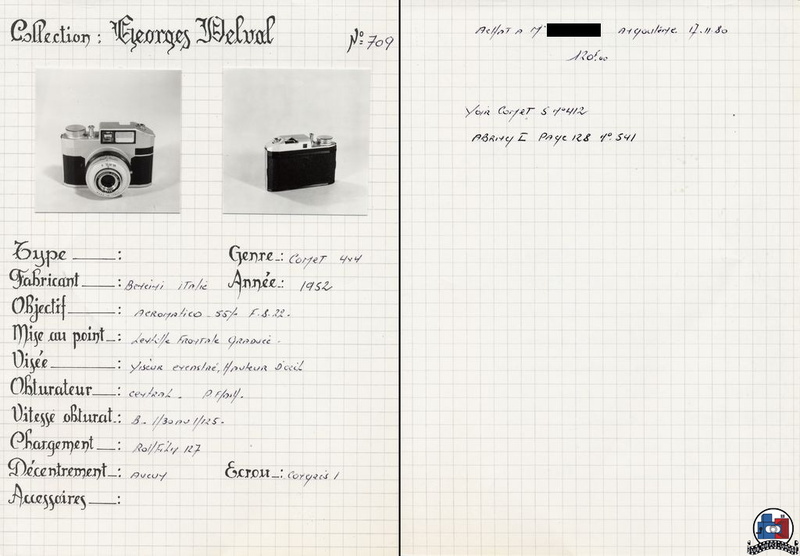 Collection : Georges Delval
N° 709
Type :
Genre : Comet 4x4
Fabricant : Bencini Italie
Année : 1952
Objectif : Acromatico 55/- F.8.22.
Mise au point : Lentille Frontale Graduée.
Visée : Viseur encastré, Hauteur D'oeil
Obturateur : central.
Vitesse obturat : B. 1/30 au 1/125.
Chargement : Rollfilm 127
Décentrement : Aucun
Ecrou : Congrès 1
Accessoires :
Achat à Mr Argoulême 17.11.80
120f.00
Voir Comet S n°412
Abring I Page 128 n° 541